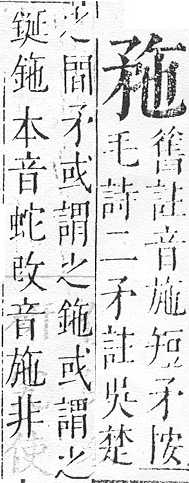 舊註音施短矛按
毛詩二矛註吳楚
之間矛或謂之鉇或謂之
鋋鉇本音蛇改音施非